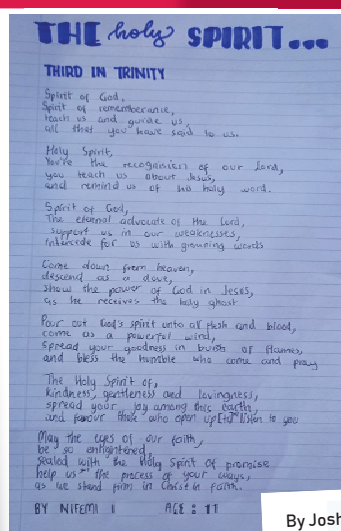 THE holy SPIRIT...
THIRD IN TRINITY
Spirit of God,
Spirit of rememberance,
teach us and guide us,
all that you have said to us.
Holy Spirit,
You're the of our lord,
you teach us about Jesus,
and remind us of his holy word.
Spirit of God,
The eternal advocate of the Lord,
support us in our weaknesses,
intercede for us with words
Come down from heaven,
descend as a dove,
show the power of God in Jesus,
as he receives the holy ghost
Pour out God's spirit unto all flesh and blood,
come as a powerful wind,
spread your goodness in bursts of flames,
and bless the humble who come and pray
The Holy Spirit of,
kindness, gentleness and lovingness,
spread your joy among this earth,
and favour those who open up to listen to you
May the eyes of our faith,
be so enlightened,
sealed with the Holy Spirit of promise
help us the process of your ways,
as we stand firm in Christ in faith.
BY NIFEMI I AGE: 11
By Josh